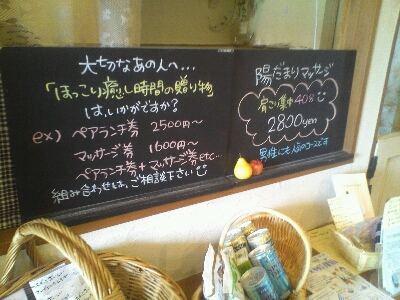 大切なあの人へ...
「ほっこり癒し時間の贈り物
は、いかがですか?
ex) ペアランチ券 2500円〜
マッサージ券 1600円〜
ペアランチ券+マッサージ券etc...
組み合わせは、ご相談下さい
陽だまりマッサージ
肩こり集中40分
2800yen
男性にも人気のコースです